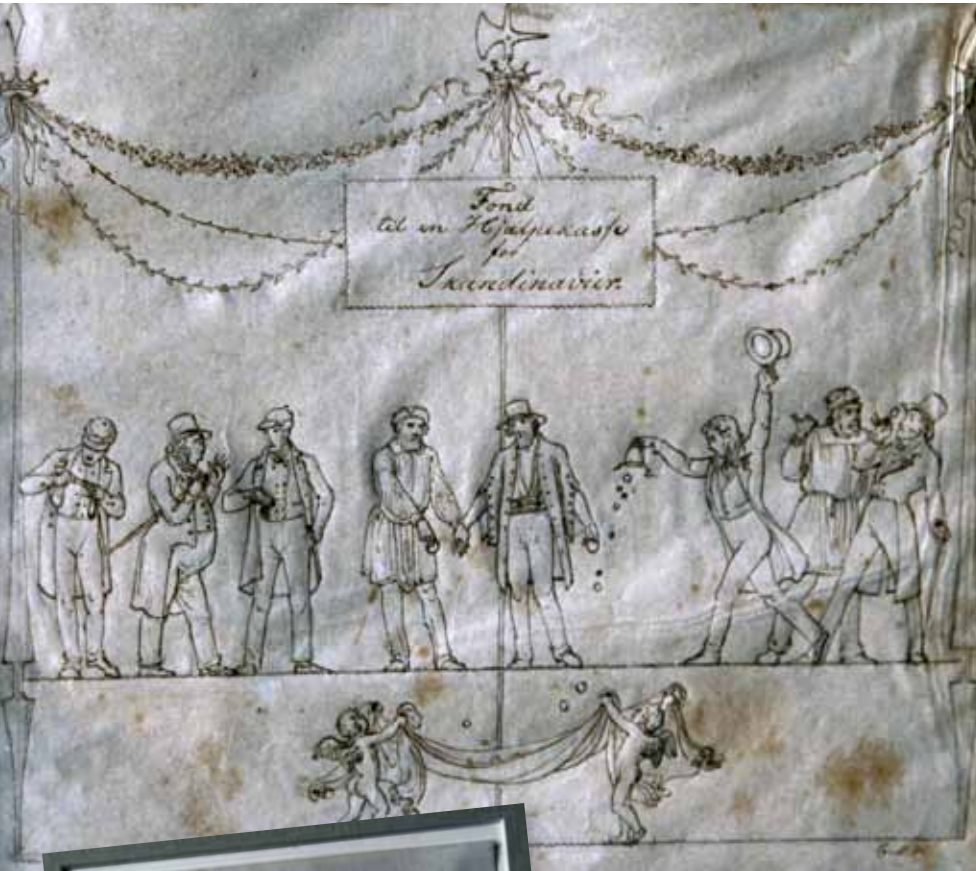 Fond
til en Hjælpekasse
for
Skandinavier.